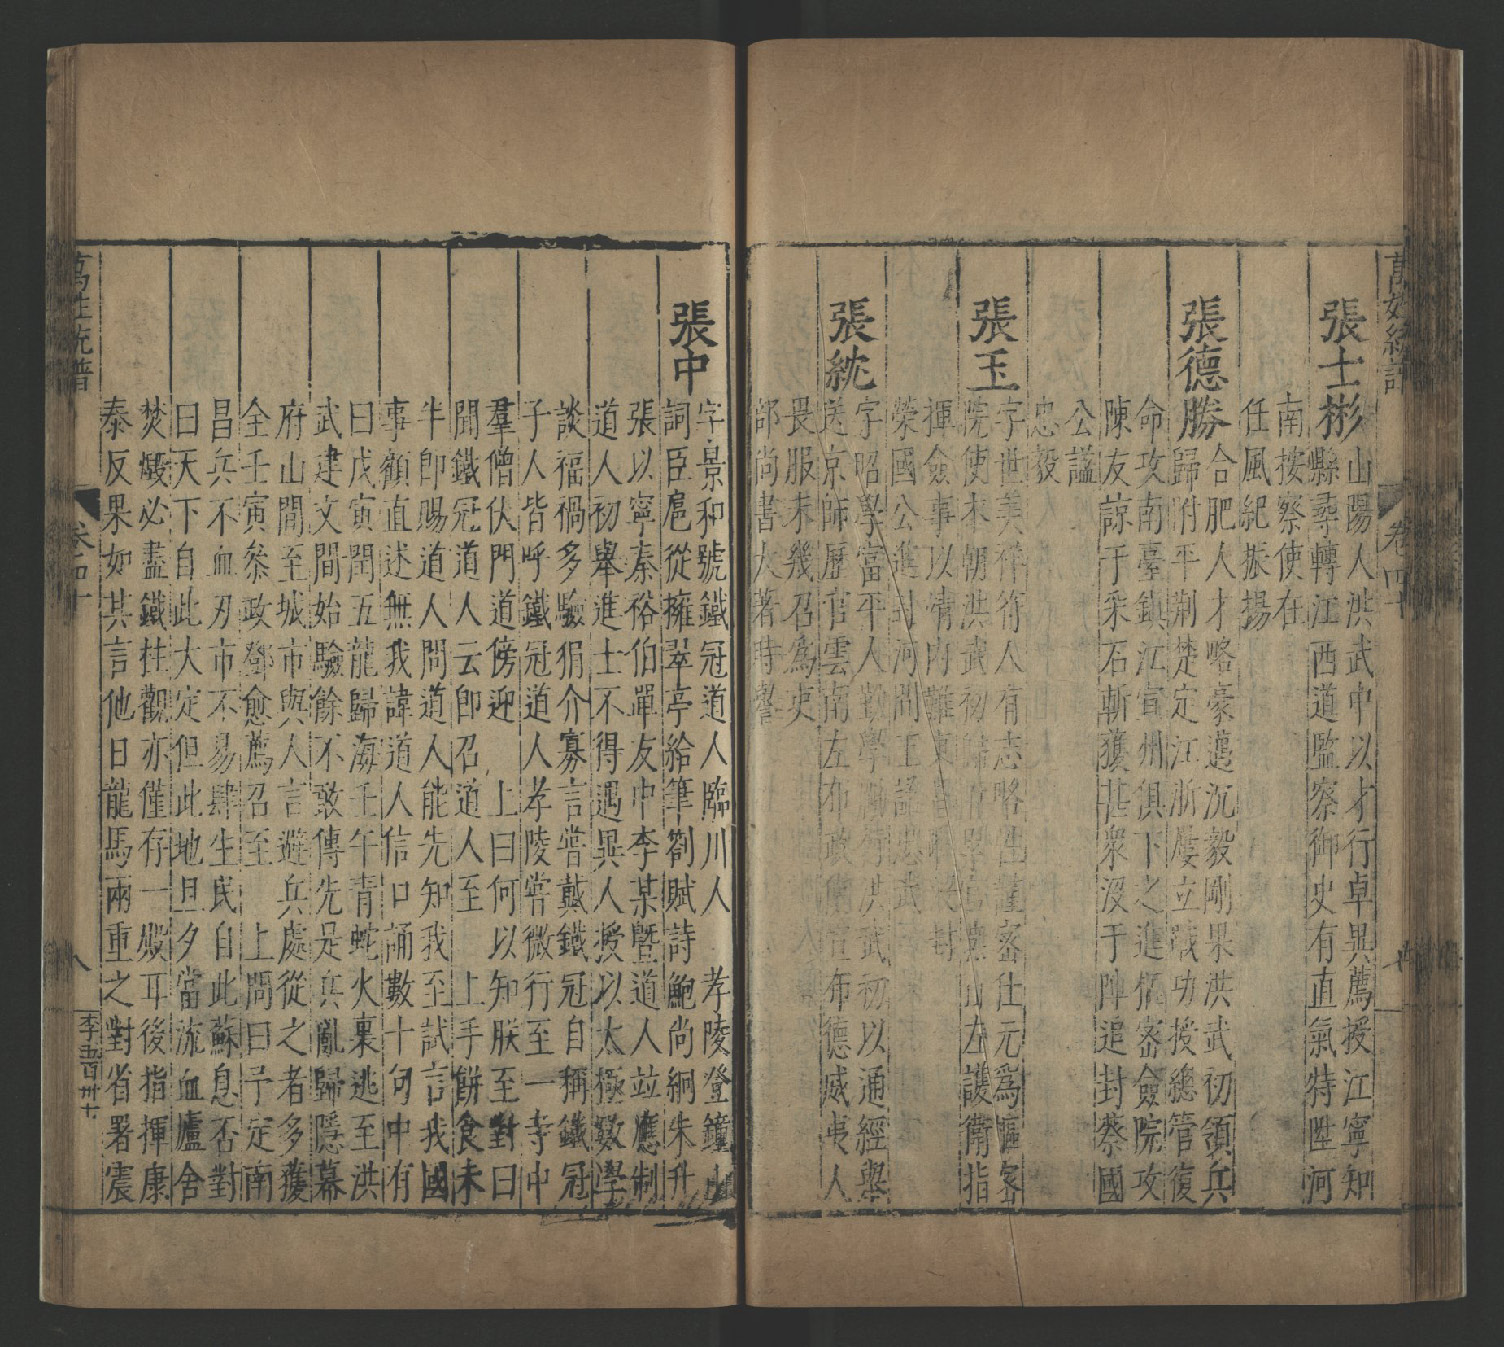 張士彬
山陽人洪武中以才行卓異薦授江寧知
縣尋轉江西道監察御史有直氣特陞河
南按察使在
任風紀振揚
張德勝
合肥人才略豪邁沉毅剛果洪武初領兵
歸附平荆楚定江浙屢立戰功授總管復
命攻南臺鎮江宣州俱下之進樞密僉院攻
陳友諒于采石斬獲甚衆沒于陣追封蔡國
公謚
忠毅
張玉
字世美祥符人有志略性謹密仕元為樞密
院使本朝洪武初歸附
山左護衛指
揮僉事以靖内難
榮國公進封河間王謚忠武
張紞
字昭學富平人
洪武初以通經舉
送京師歷官雲南左布政
布德威夷人
畏服未幾召為吏
部尚書大著時譽
張中
字景和號鐵冠道人臨川人 孝陵登鐘山
詞臣扈從擁翠亭給筆劄賦詩鮑尚絅朱升
張以寧秦裕伯單友中李某曁道人竝應制
道人初舉進士不得遇異人授以太極數學
談福禍多驗狷介寡言嘗戴鐵冠自稱鐵冠
子人皆呼鐵冠道人孝陵嘗微行至一寺中
羣僧伏門道傍迎 上曰何以知朕至對曰
聞鐵冠道人云卽召道人至 上手餅食未
半卽賜道人問道人能先知我至試言我國
事顧直述無我諱道人信口誦數十句中有
曰戊寅閏五龍歸海壬午青蛇火裏逃至洪
武建文間始驗餘不敢傳先是兵亂歸隱幕
府山間至城市與人言避兵處從之者多獲
全壬寅叅政鄧愈薦召至 上問曰予定南
昌兵不血刃市不易肆生民自此蘇息否對
曰天下自此大定但此地旦夕當流血廬舍
焚燬必盡鐵柱觀亦僅存一殿耳後指揮康
泰反果如其言他日龍馬兩重之對省署震
萬姓統譜
卷四十
八